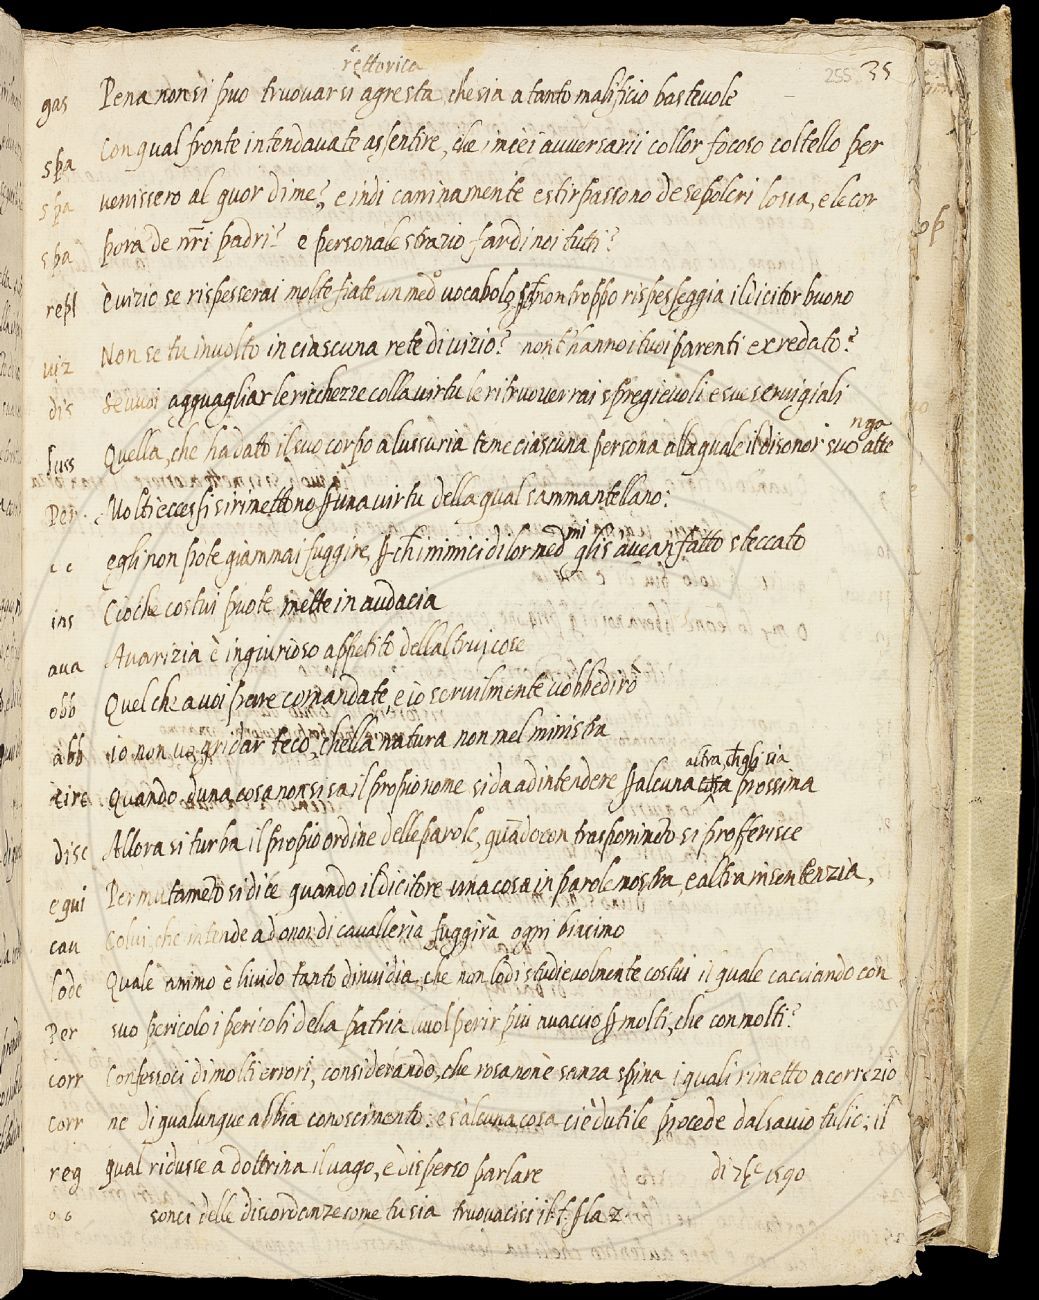 rettorica
255 35
gas Pena non si puo truovar si agresta, che sia a tanto malificio bastevole
spa Con qual fronte intendavate assentire, che i miei avversarii col lor focoso coltello per
spa venissero al quor di me? e indi caninamente estirpassono de sepolcri l'ossa, e le cor
spa pora de nr̃i padri? e personale strazio far di noi tutti?
repl è vizio se rispesserai molte fiate un med.o vocabolo, non troppo rispesseggia il dicitor buono
viz Non se tu involto in ciascuna rete di vizio? non t'hanno i tuoi parenti exredato?
dis Se vuoi agguagliar le ricchezze colla virtu le ritruoverrai spregievoli e sue servigiali
nga
luss Quella, che ha dato il suo corpo a lussuria teme ciascuna persona alla quale il disonor suo atte
Per Molti eccessi si rimettono p una virtu della qual s'ammantellano:
mi
egli non pote giammai fuggire, p ch'i nimici di lor med gli s'avean fatto steccato
ins Cio che costui puote mette in audacia
ava Avarizia è ingiurioso appetito dell'altrui cose
obb Quel che a voi pare comandate, e io servilmente v'obbedirò
abb io non vo gridar teco, chella natura non mel ministra
altra, ch gli sia
circ Quando d'una cosa non si sa il propio nome si da ad intendere p alcuna prossima
disc Allora si turba il propio ordine delle parole, quãdo con trasponimẽto si profferisce
equi Permutamẽto si dice quando il dicitore una cosa in parole mostra, e altra in sentenzia,
cau Colui, che intende ad onor di cavalleria fuggirà ogni biasimo
lode Quale animo è livido tanto d'invidia, che non lodi studievolmente costui il quale cacciando con
Per suo pericolo i pericoli dela patria vuol perir piu avaccio p molti, che con molti?
corr Confessoci di molti errori, considerando, che rosa non è sanza spina i quali rimetto a correzio
corr ne di qualunque abbia conoscimento: e s'alcuna cosa ci è d'utile procede dal savio tulio; il
reg qual ridusse a dottrina il vago, e disperso parlare di 1590
sonci delle discordanze come tu sia truovacisi il p la z